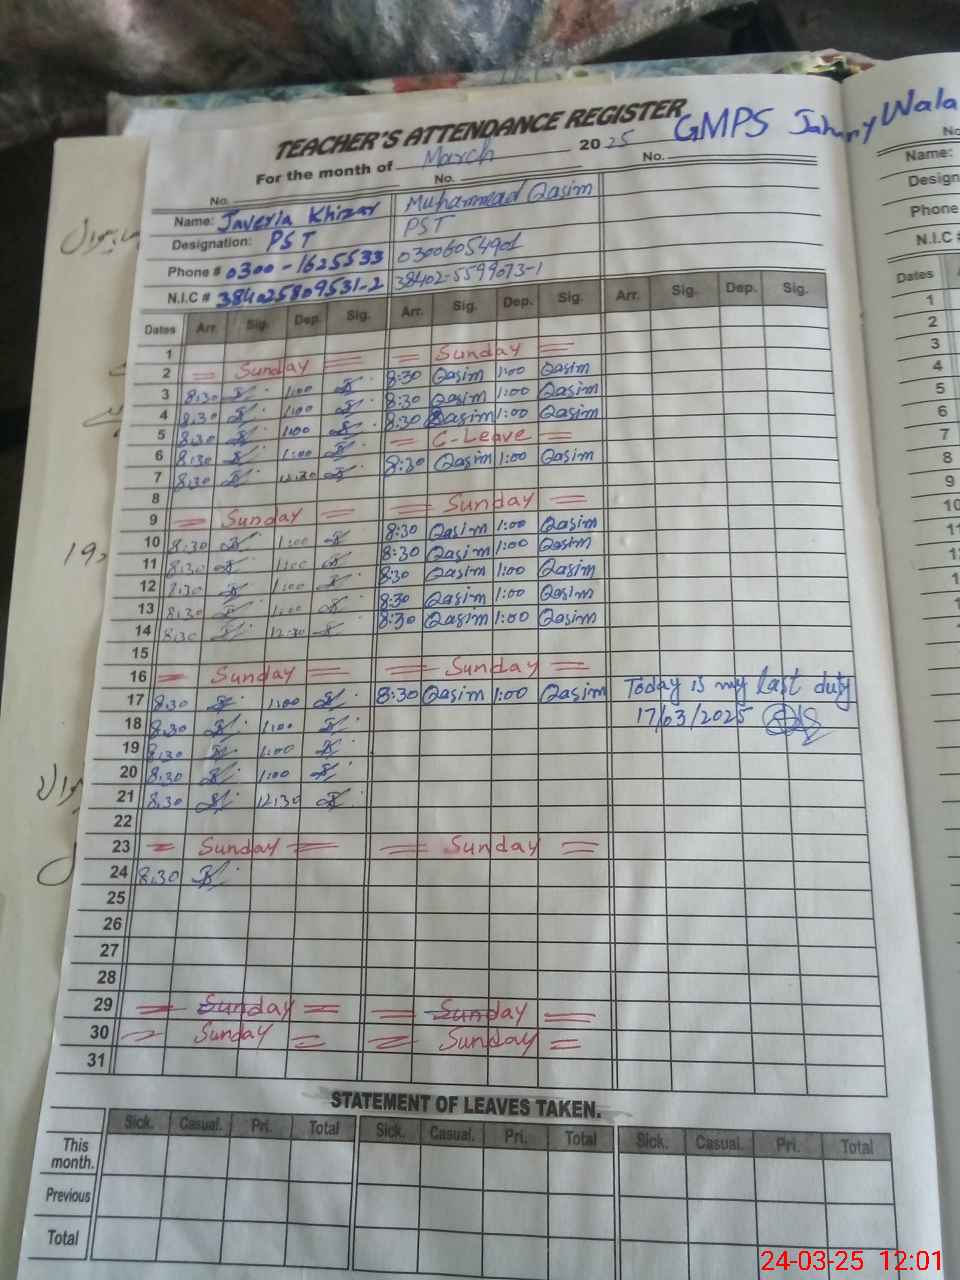 TEACHER'S ATTENDANCE REGISTER GMPS
For the month of March 2025
No. No. No.
Name: Javeria Khizar Muhammad Qasim
Designation: PST PST
Phone # 0300-1625533 03006054901
N.I.C # 384025809531-2 38402-5599073-1
Dates Arr. Sig. Dep. Sig. Arr. Sig. Dep. Sig. Arr. Sig. Dep. Sig.
1
2 = Sunday = = Sunday =
3 8:30 1:00 8:30 Qasim 1:00 Qasim
4 8:30 1:00 8:30 Qasim 1:00 Qasim
5 8:30 1:00 8:30 Qasim 1:00 Qasim
6 8:30 1:00 = C-Leave =
7 8:30 12:30 8:30 Qasim 1:00 Qasim
8
9 = Sunday = = Sunday =
10 8:30 1:00 8:30 Qasim 1:00 Qasim
11 8:30 1:00 8:30 Qasim 1:00 Qasim
12 8:30 1:00 8:30 Qasim 1:00 Qasim
13 8:30 1:00 8:30 Qasim 1:00 Qasim
14 8:30 12:30 8:30 Qasim 1:00 Qasim
15
16 = Sunday = = Sunday =
17 8:30 1:00 8:30 Qasim 1:00 Qasim Today is my last duty
18 8:30 1:00 17/03/2025
19 8:30 1:00
20 8:30 1:00
21 8:30 12:30
22
23 = Sunday = = Sunday =
24 8:30
25
26
27
28
29 = Sunday = = Sunday =
30 = Sunday = = Sunday =
31
STATEMENT OF LEAVES TAKEN.
Sick. Casual. Pri. Total Sick. Casual. Pri. Total Sick. Casual. Pri. Total
This month.
Previous
Total
Name:
Phone
N.I.C #
Dates
1
2
3
4
5
6
7
8
9
24-03-25 12:01